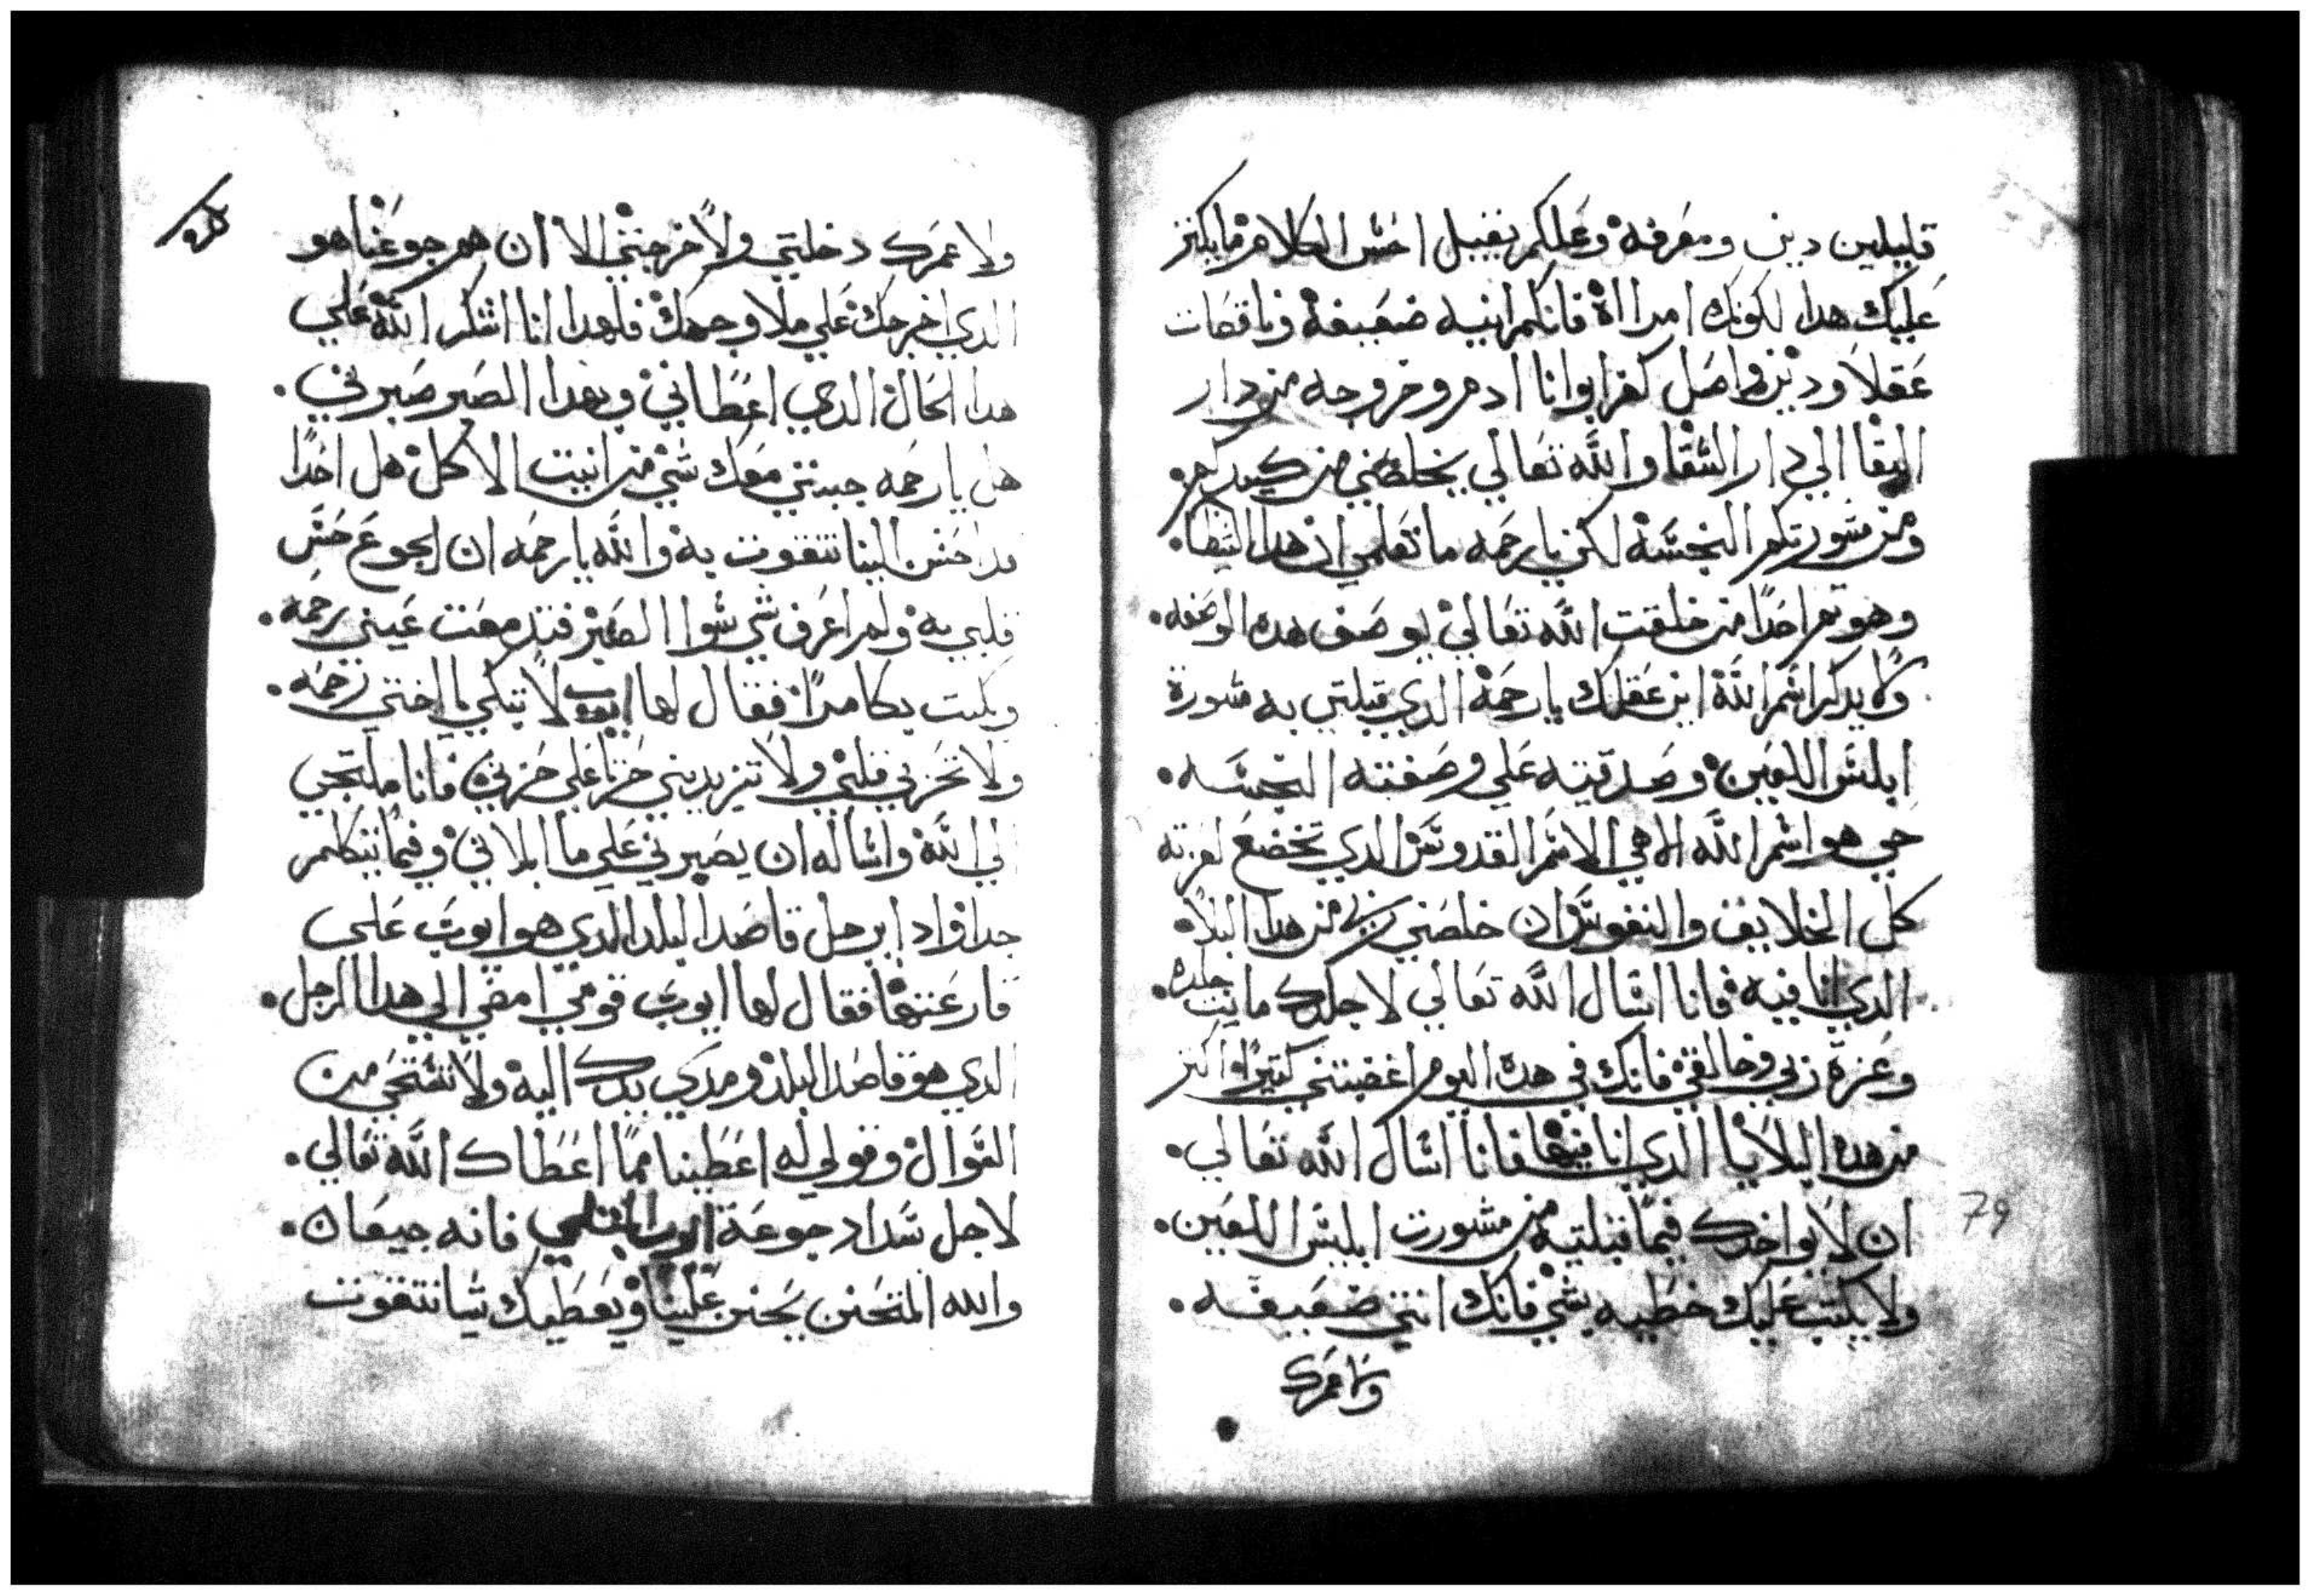 قليلين دين ومعرفة وعلكم يقبل اخس الكلام ما يكتر
عليك هدا لكونك امرااة فانكم ابنيه ضعيفة وناقصات
عقلا ودين واصل كفر ابوانا ادم وخروجه من دار
البقا الي دار الشقا والله تعالي يخلصني من كيدكم
ومن مشورتكم النجسة لكن يا رحمه ما تعلمي ان هدا
وهو احدا من خلقت الله تعالي يوصف هده الوصفه.
ولا يدكر اسم الله اين عقلك يا رحمة الدي قبلتي به مشورة
ابليس اللعين وصدقتيه علي وصفته النجسه.
حي هو اسم الله الاهي الاسم القدوس الدي تخضع لعزته
كل الخلايق والنفوس ان خلصني ربي من هدا البلا.
الدي انا فيه فانا اسال الله تعالي لاجلدك مايت جلده.
وعزة ربي وخالقي فانك في هده اليوم اغضبتني كتيرا واكتر
من هده البلايا الدي انا فيها فانا اسال الله تعالي.
ان لا يواخدك فيما قبلتيه من مشورت ابليس اللعين.
ولا يكتب عليك خطيه بشي فانك انتي ضعيفه.
ولا عمرك
79
ولا عمرك دخلتي ولا خرجتي الا ان هم جوعنا هو
الدي اخرجك علي ملا وجهك فلهدا انا اشكر الله علي
هدا الحال الدي اعطاني وبهدا الصبر صبرني.
هل يا رحمه جبتي معك شي من انيت الاكل هل احدا
قد احسن الينا نتقوت به والله يا رحمه ان الجوع حس
قلبي به ولم اعرف شي سوا الصبر فتدمعت عيني رحمه.
وبكيت بكا مرا فقال لها ايوب لا تبكي يا اختي رحمه.
ولا تحزني قلبي ولا تزيديني حزنا علي حزني فانا ملتجي
الي الله واساله ان يصبرني علي ما ابلاني وفيما نتكلم
جدا واد ابرجل قاصد البلد الدي هو ايوب علي
قارعتها فقال لها ايوب قومي امضي الي هدا الرجل.
الدي هو قاصد البلد ومدي يدك اليه ولا تستحي من
السوال وقولي له اعطينا مما اعطاك الله تعالي.
لاجل سداد جوعة ايوب المبتلي فانه جيعان.
والله المتحنن يحنن علينا ويعطيك شيا نتقوت